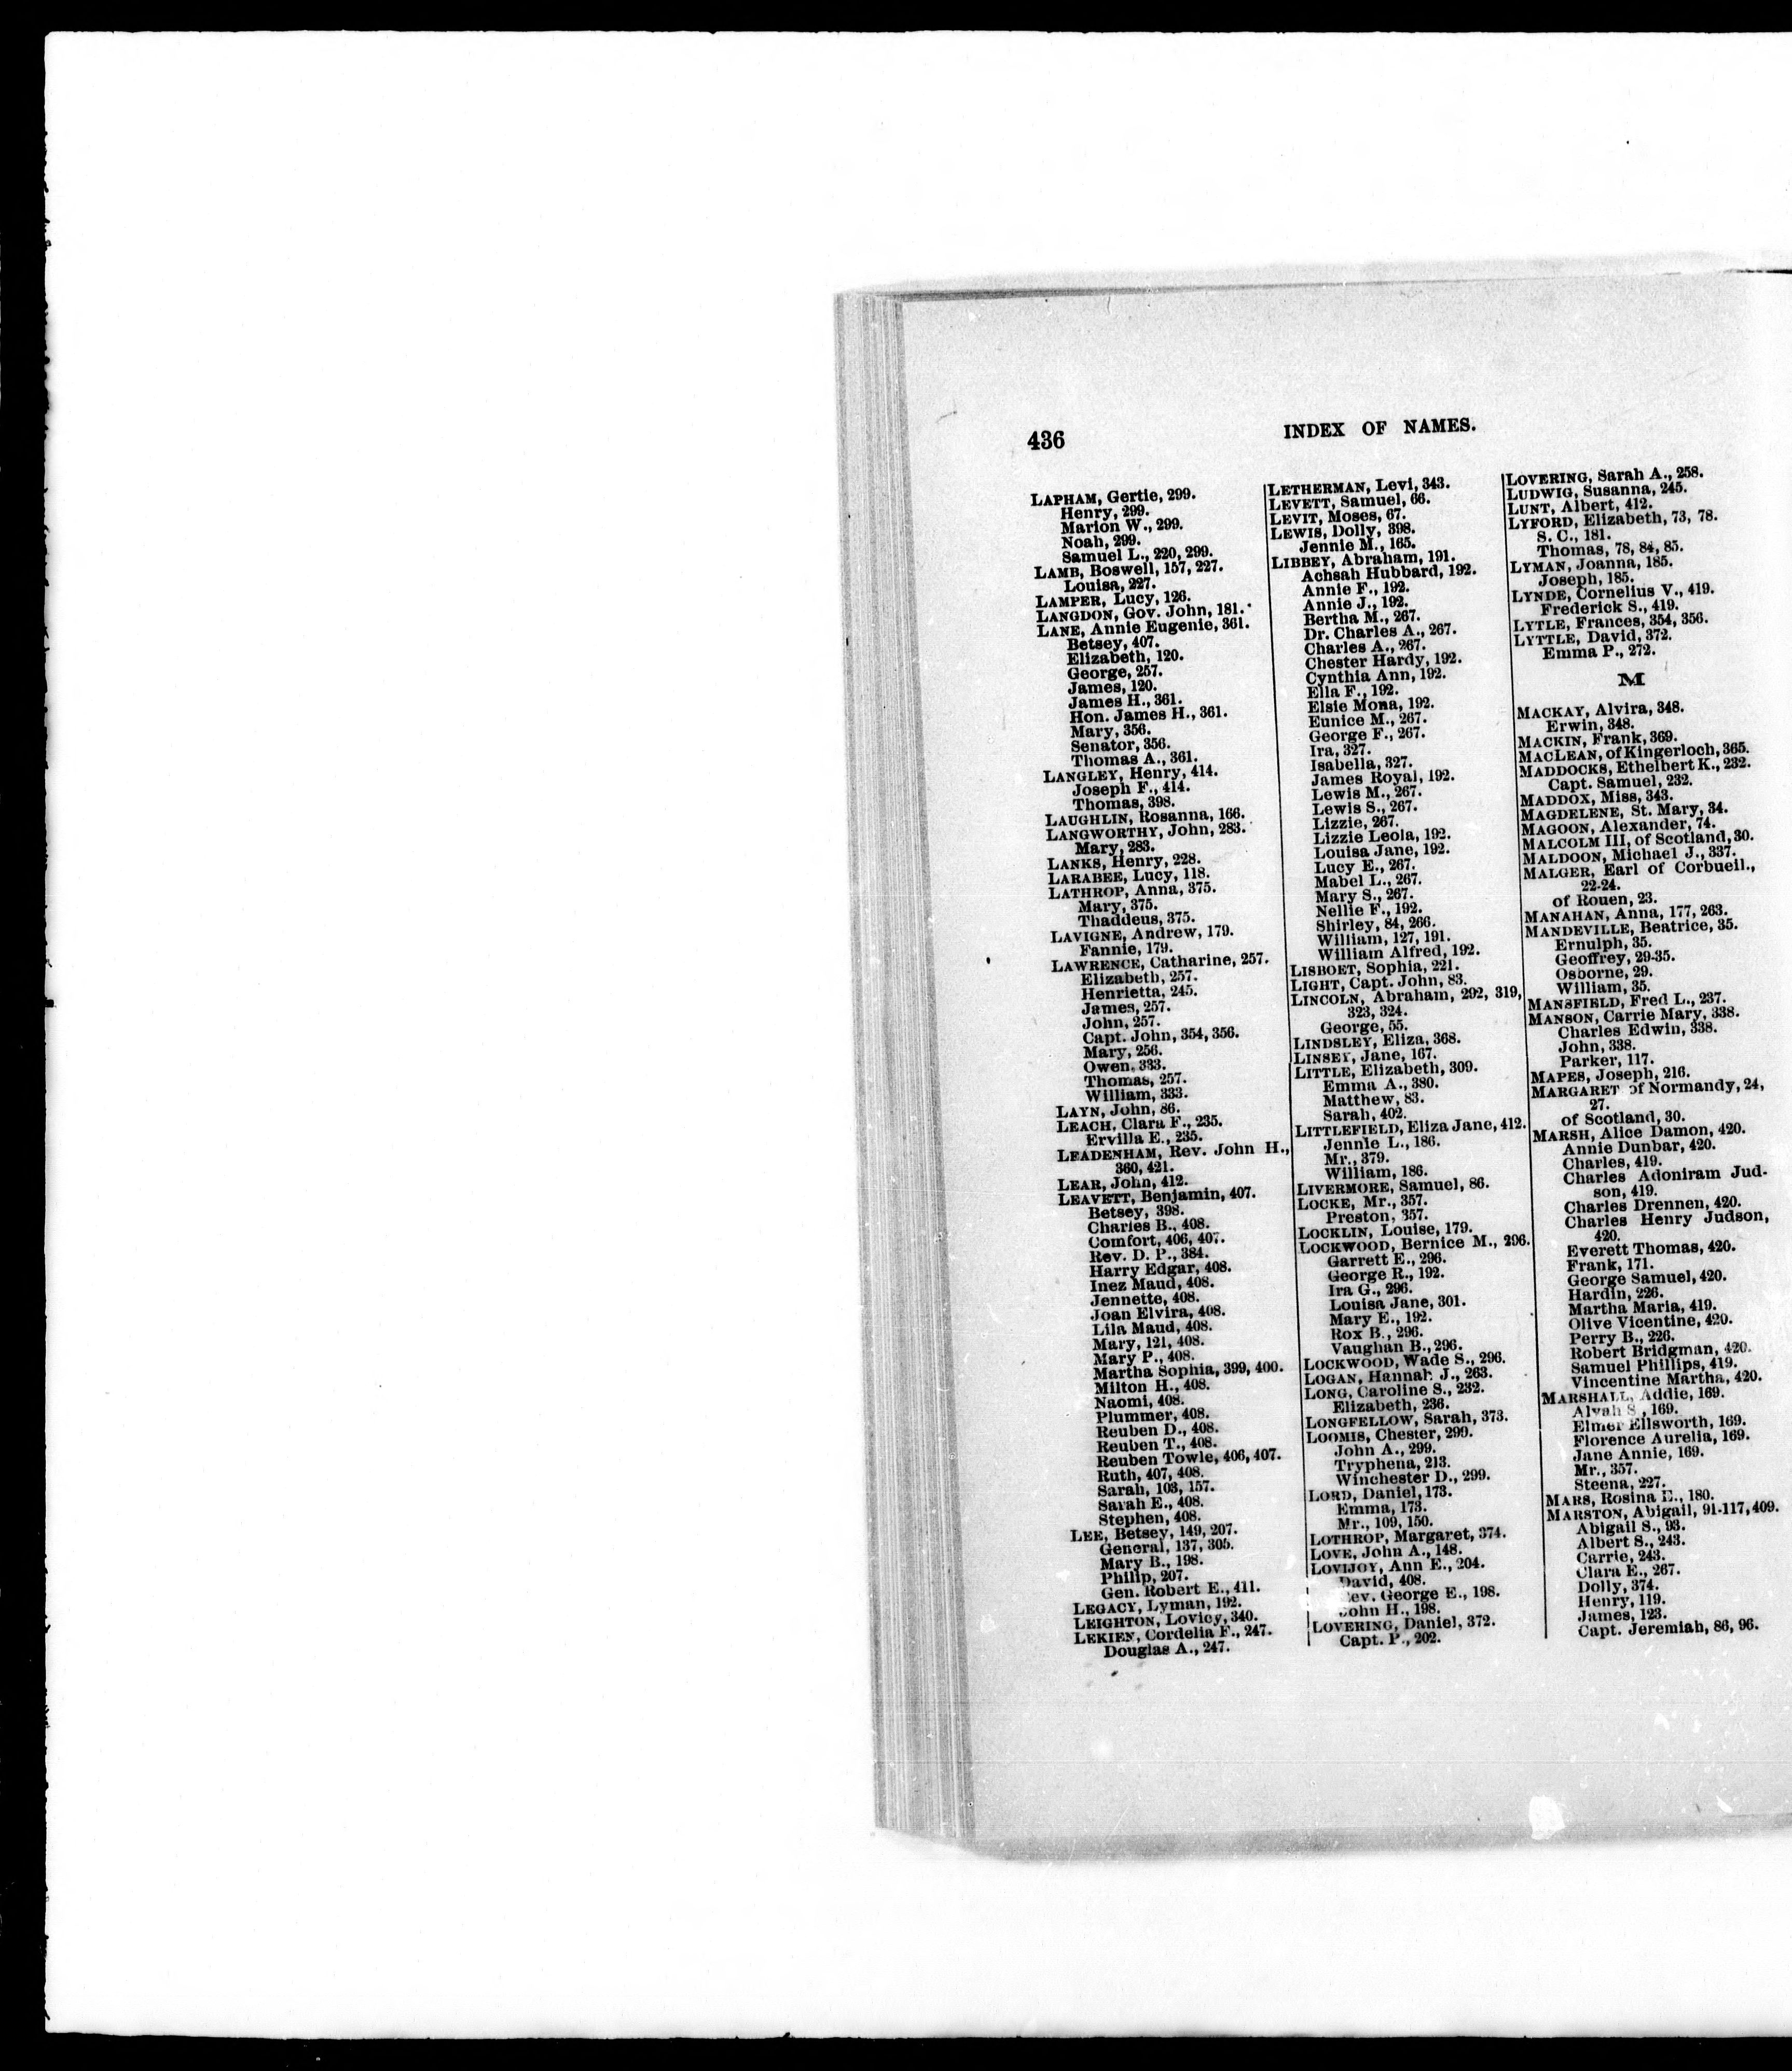 436
INDEX OF NAMES.
LAPHAM, Gertie, 299.
Henry, 299.
Marion W., 299.
Noah, 299.
Samuel L., 220, 299.
LAMB, Boswell, 157, 227.
Louisa, 227.
LAMPER, Lucy, 126.
LANGDON, Gov. John, 181.
LANE, Annie Eugenie, 361.
Betsey, 407.
Elizabeth, 120.
George, 257.
James, 120.
James H., 361.
Hon. James H., 361.
Mary, 356.
Senator, 356.
Thomas A., 361.
LANGLEY, Henry, 414.
Joseph F., 414.
Thomas, 398.
LAUGHLIN, Rosanna, 166.
LANGWORTHY, John, 283.
Mary, 283.
LANKS, Henry, 228.
LARABEE, Lucy, 118.
LATHROP, Anna, 375.
Mary, 375.
Thaddeus, 375.
LAVIGNE, Andrew, 179.
Fannie, 179.
LAWRENCE, Catharine, 257.
Elizabeth, 257.
Henrietta, 245.
James, 257.
John, 257.
Capt. John, 354, 356.
Mary, 256.
Owen, 333.
Thomas, 257.
William, 333.
LAYN, John, 86.
LEACH, Clara F., 235.
Ervilla E., 235.
LEADENHAM, Rev. John H.,
360, 421.
LEAR, John, 412.
LEAVETT, Benjamin, 407.
Betsey, 398.
Charles B., 408.
Comfort, 406, 407.
Rev. D. P., 384.
Harry Edgar, 408.
Inez Maud, 408.
Jennette, 408.
Joan Elvira, 408.
Lila Maud, 408.
Mary, 121, 408.
Mary P., 408.
Martha Sophia, 399, 400.
Milton H., 408.
Naomi, 408.
Plummer, 408.
Reuben D., 408.
Reuben T., 408.
Reuben Towle, 406, 407.
Ruth, 407, 408.
Sarah, 103, 157.
Sarah E., 408.
Stephen, 408.
LEE, Betsey, 149, 207.
General, 137, 305.
Mary B., 198.
Philip, 207.
Gen. Robert E., 411.
LEGACY, Lyman, 192.
LEIGHTON, Lovicy, 340.
LEKIEN, Cordelia F., 247.
Douglas A., 247.
LETHERMAN, Levi, 343.
LEVETT, Samuel, 66.
LEVIT, Moses, 67.
LEWIS, Dolly, 398.
Jennie M., 165.
LIBBEY, Abraham, 191.
Achsah Hubbard, 192.
Annie F., 192.
Annie J., 192.
Bertha M., 267.
Dr. Charles A., 267.
Charles A., 267.
Chester Hardy, 192.
Cynthia Ann, 192.
Ella F., 192.
Elsie Mona, 192.
Eunice M., 267.
George F., 267.
Ira, 327.
Isabella, 327.
James Royal, 192.
Lewis M., 267.
Lewis S., 267.
Lizzie, 267.
Lizzie Leola, 192.
Louisa Jane, 192.
Lucy E., 267.
Mabel L., 267.
Mary S., 267.
Nellie F., 192.
Shirley, 84, 266.
William, 127, 191.
William Alfred, 192.
LISBOET, Sophia, 221.
LIGHT, Capt. John, 83.
LINCOLN, Abraham, 292, 319,
323, 324.
George, 55.
LINDSLEY, Eliza, 368.
LINSEY, Jane, 167.
LITTLE, Elizabeth, 309.
Emma A., 380.
Matthew, 83.
Sarah, 402.
LITTLEFIELD, Eliza Jane, 412.
Jennie L., 186.
Mr., 379.
William, 186.
LIVERMORE, Samuel, 86.
LOCKE, Mr., 357.
Preston, 357.
LOCKLIN, Louise, 179.
LOCKWOOD, Bernice M., 296.
Garrett E., 296.
George R., 192.
Ira G., 296.
Louisa Jane, 301.
Mary E., 192.
Rox B., 296.
Vaughan B., 296.
LOCKWOOD, Wade S., 296.
LOGAN, Hannah J., 263.
LONG, Caroline S., 232.
Elizabeth, 236.
LONGFELLOW, Sarah, 373.
LOOMIS, Chester, 299.
John A., 299.
Tryphena, 213.
Winchester D., 299.
LORD, Daniel, 173.
Emma, 173.
Mr., 109, 150.
LOTHROP, Margaret, 374.
LOVE, John A., 148.
LOVIJOY, Ann E., 204.
David, 408.
Rev. George E., 198.
John H., 198.
LOVERING, Daniel, 372.
Capt. P., 202.
LOVERING, Sarah A., 258.
LUDWIG, Susanna, 245.
LUNT, Albert, 412.
LYFORD, Elizabeth, 73, 78.
S. C., 181.
Thomas, 78, 84, 85.
LYMAN, Joanna, 185.
Joseph, 185.
LYNDE, Cornelius V., 419.
Frederick S., 419.
LYTLE, Frances, 354, 356.
LYTTLE, David, 372.
Emma P., 272.
M
MACKAY, Alvira, 348.
Erwin, 348.
MACKIN, Frank, 369.
MACLEAN, of Kingerloch, 365.
MADDOCKS, Ethelbert K., 232.
Capt. Samuel, 232.
MADDOX, Miss, 343.
MAGDELENE, St. Mary, 34.
MAGOON, Alexander, 74.
MALCOLM III, of Scotland, 30.
MALDOON, Michael J., 337.
MALGER, Earl of Corbueil.,
22-24.
of Rouen, 23.
MANAHAN, Anna, 177, 263.
MANDEVILLE, Beatrice, 35.
Ernulph, 35.
Geoffrey, 29-35.
Osborne, 29.
William, 35.
MANSFIELD, Fred L., 237.
MANSON, Carrie Mary, 338.
Charles Edwin, 338.
John, 338.
Parker, 117.
MAPES, Joseph, 216.
MARGARET of Normandy, 24,
27.
of Scotland, 30.
MARSH, Alice Damon, 420.
Annie Dunbar, 420.
Charles, 419.
Charles Adoniram Jud-
son, 419.
Charles Drennen, 420.
Charles Henry Judson,
420.
Everett Thomas, 420.
Frank, 171.
George Samuel, 420.
Hardin, 226.
Martha Maria, 419.
Olive Vicentine, 420.
Perry B., 226.
Robert Bridgman, 420.
Samuel Phillips, 419.
Vincentine Martha, 420.
MARSHALL, Addie, 169.
Alvah S., 169.
Elmer Ellsworth, 169.
Florence Aurelia, 169.
Jane Annie, 169.
Mr., 357.
Steena, 227.
MARS, Rosina E., 180.
MARSTON, Abigail, 91-117, 409.
Abigail S., 93.
Albert S., 243.
Carrie, 243.
Clara E., 267.
Dolly, 374.
Henry, 119.
James, 123.
Capt. Jeremiah, 86, 96.